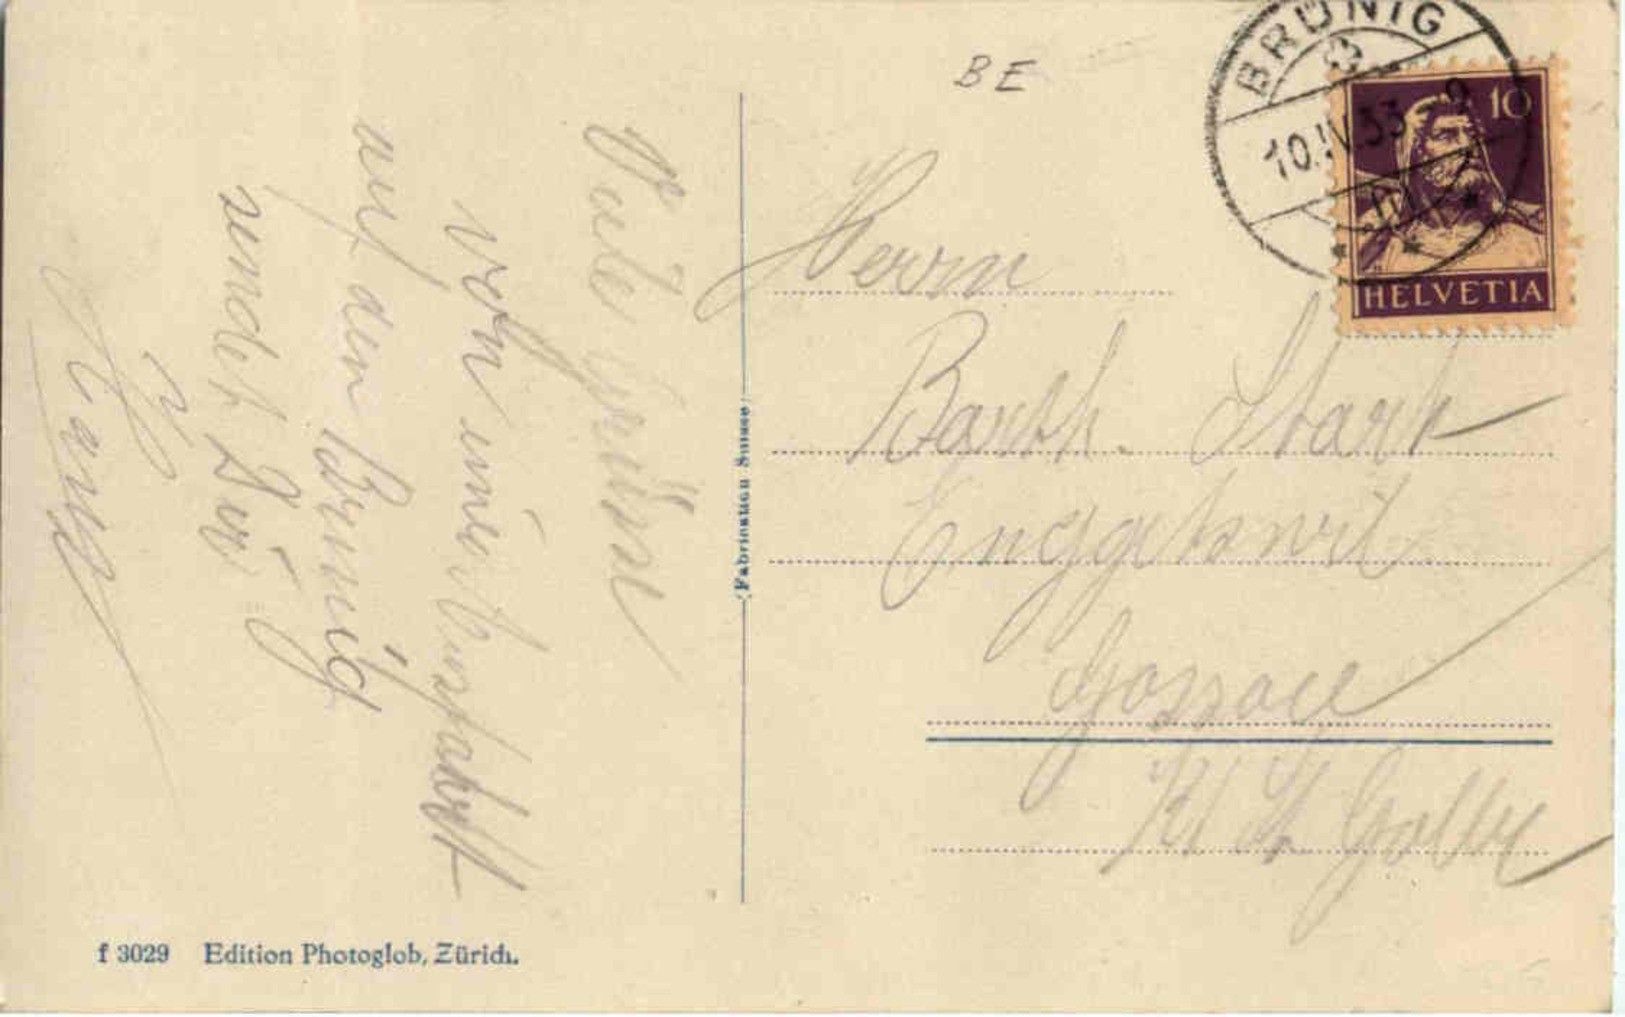 BE
BRÜNIG
10.IV.33-9
10
HELVETIA
Viele Grüsse
von einer
auf den Brünig
sendet Dir
Hans
Herrn
Barth. Stark
Enggetswil
Gossau
Kt St Gallen
Fabrication Suisse
f 3029 Edition Photoglob, Zürich.